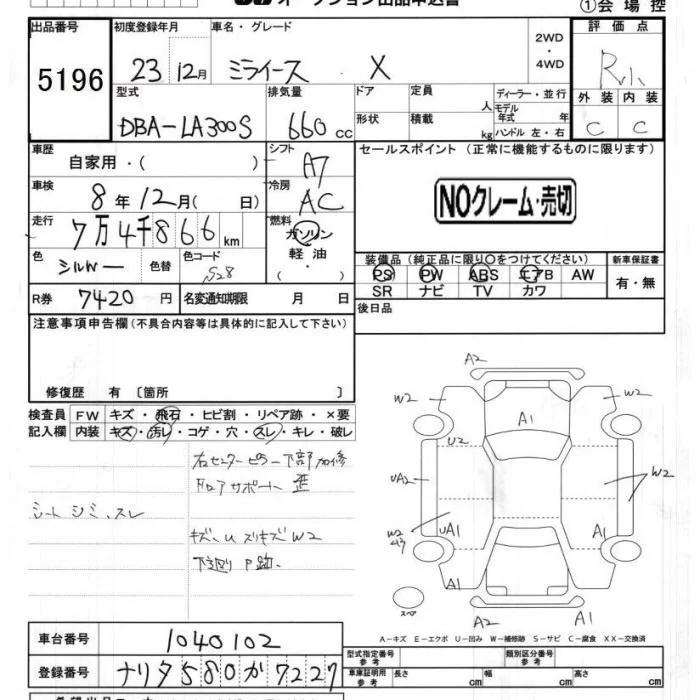 オークション出品申込書
①会場控
出品番号 初度登録年月 車名・グレード 2WD・4WD 評価点
5196 23 12月 ミライース X R小
型式 排気量 ドア 定員 人 ディーラー・並行 外装 内装
DBA-LA300S 660cc 形状 積載 kg モデル年式 年 ハンドル 左・右 C C
車歴 自家用・( ) シフト A7 セールスポイント (正常に機能するものに限ります)
車検 8年12月( 日) 冷房 AC NOクレーム・売切
走行 7万4千866km 燃料 ガソリン
色 シルバー 色替 色コード S28 軽油・( )
装備品(純正品に限り○をつけてください) 新車保証書
PS PW ABS エアB AW 有・無
SR ナビ TV カワ
R券 7420円 名変通知期限 月 日 後日品
注意事項申告欄(不具合内容等は具体的に記入して下さい)
修復歴 有 〔箇所 〕
検査員 FW キズ・飛石・ヒビ割・リペア跡・×要
記入欄 内装 キズ・汚レ・コゲ・穴・スレ・キレ・破レ
右センターピラー下部加修
シートシミ、スレ
W2
下廻りP跡.
A2
W2 W2
A1
U2
UA2 W2
UA1 A1
W2
A1
スペア
A2 A1
A-キズ E-エクボ U-凹み W-補修跡 S-サビ C-腐食 XX-交換済
車台番号 1040102
登録番号 ナリタ580か7227
型式指定番号 参考 類別区分番号 参考
車庫証明用 参考 長さ cm 幅 cm 高さ cm